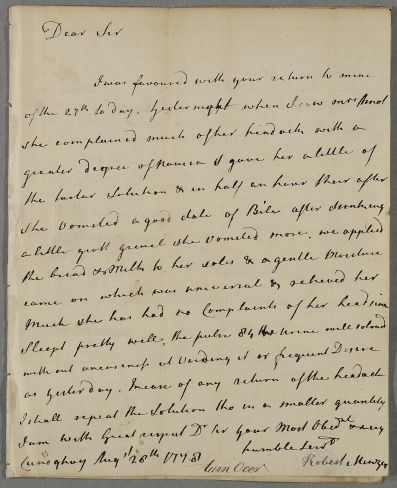 Dear Sir
I was favoured with your return to mine
of the 27th to day. Yesternight when I saw mrs
she complained much of her headach with a
greater degree of Nausea I gave her a little of
the tartar Solution & in half an hour there after
she vometed a good dale of Bile after drinking
a little gruel she vometed more. we applied
the bread & Milk to her soles & a gentle Moisture
came on which was universal & relieved her
Much she has had no Complaints of her head since
Sleept pretty well, the pulse 84 the urine well colourd
with out uneasiness at Voiding it or frequent Desire
as yesterday. Incase of any return of the headach
I shall repeat the Solution tho in a smaller quantity
I am with Great respect Dr Sir your Most Obedt & very
humble Servt
Augt 28th 1778 Robert
turn Over